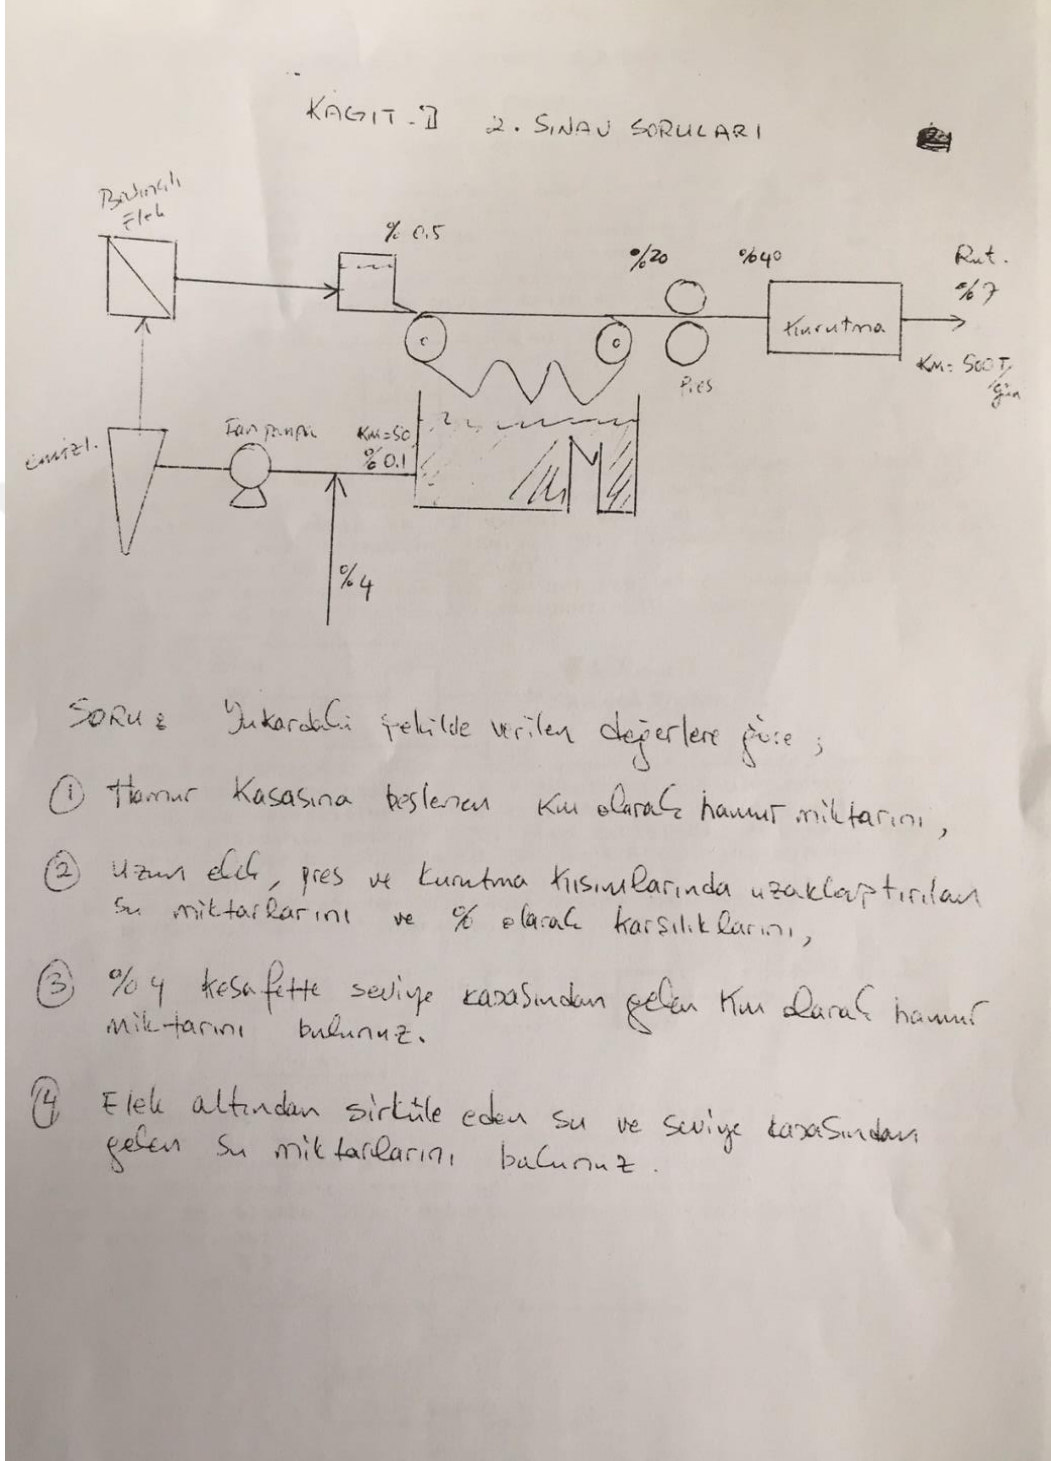 KAGIT-II 2. SINAV SORULARI
Basınçlı
Elek
% 0.5
%20
%40
Rut.
%7
Kurutma
KM= 500 T/gün
Pres
Fan pompa
KM=50
% 0.1
%4
SORU: Yukardaki şekilde verilen değerlere göre;
① Hamur Kasasına beslenen KM olarak hamur miktarını,
② Uzun elek, pres ve kurutma kısımlarında uzaklaştırılan
su miktarlarını ve % olarak karşılıklarını,
③ %4 kesafette seviye kasasından gelen KM olarak hamur
miktarını bulunuz.
④ Elek altından sirküle eden su ve seviye kasasından
gelen su miktarlarını bulunuz.